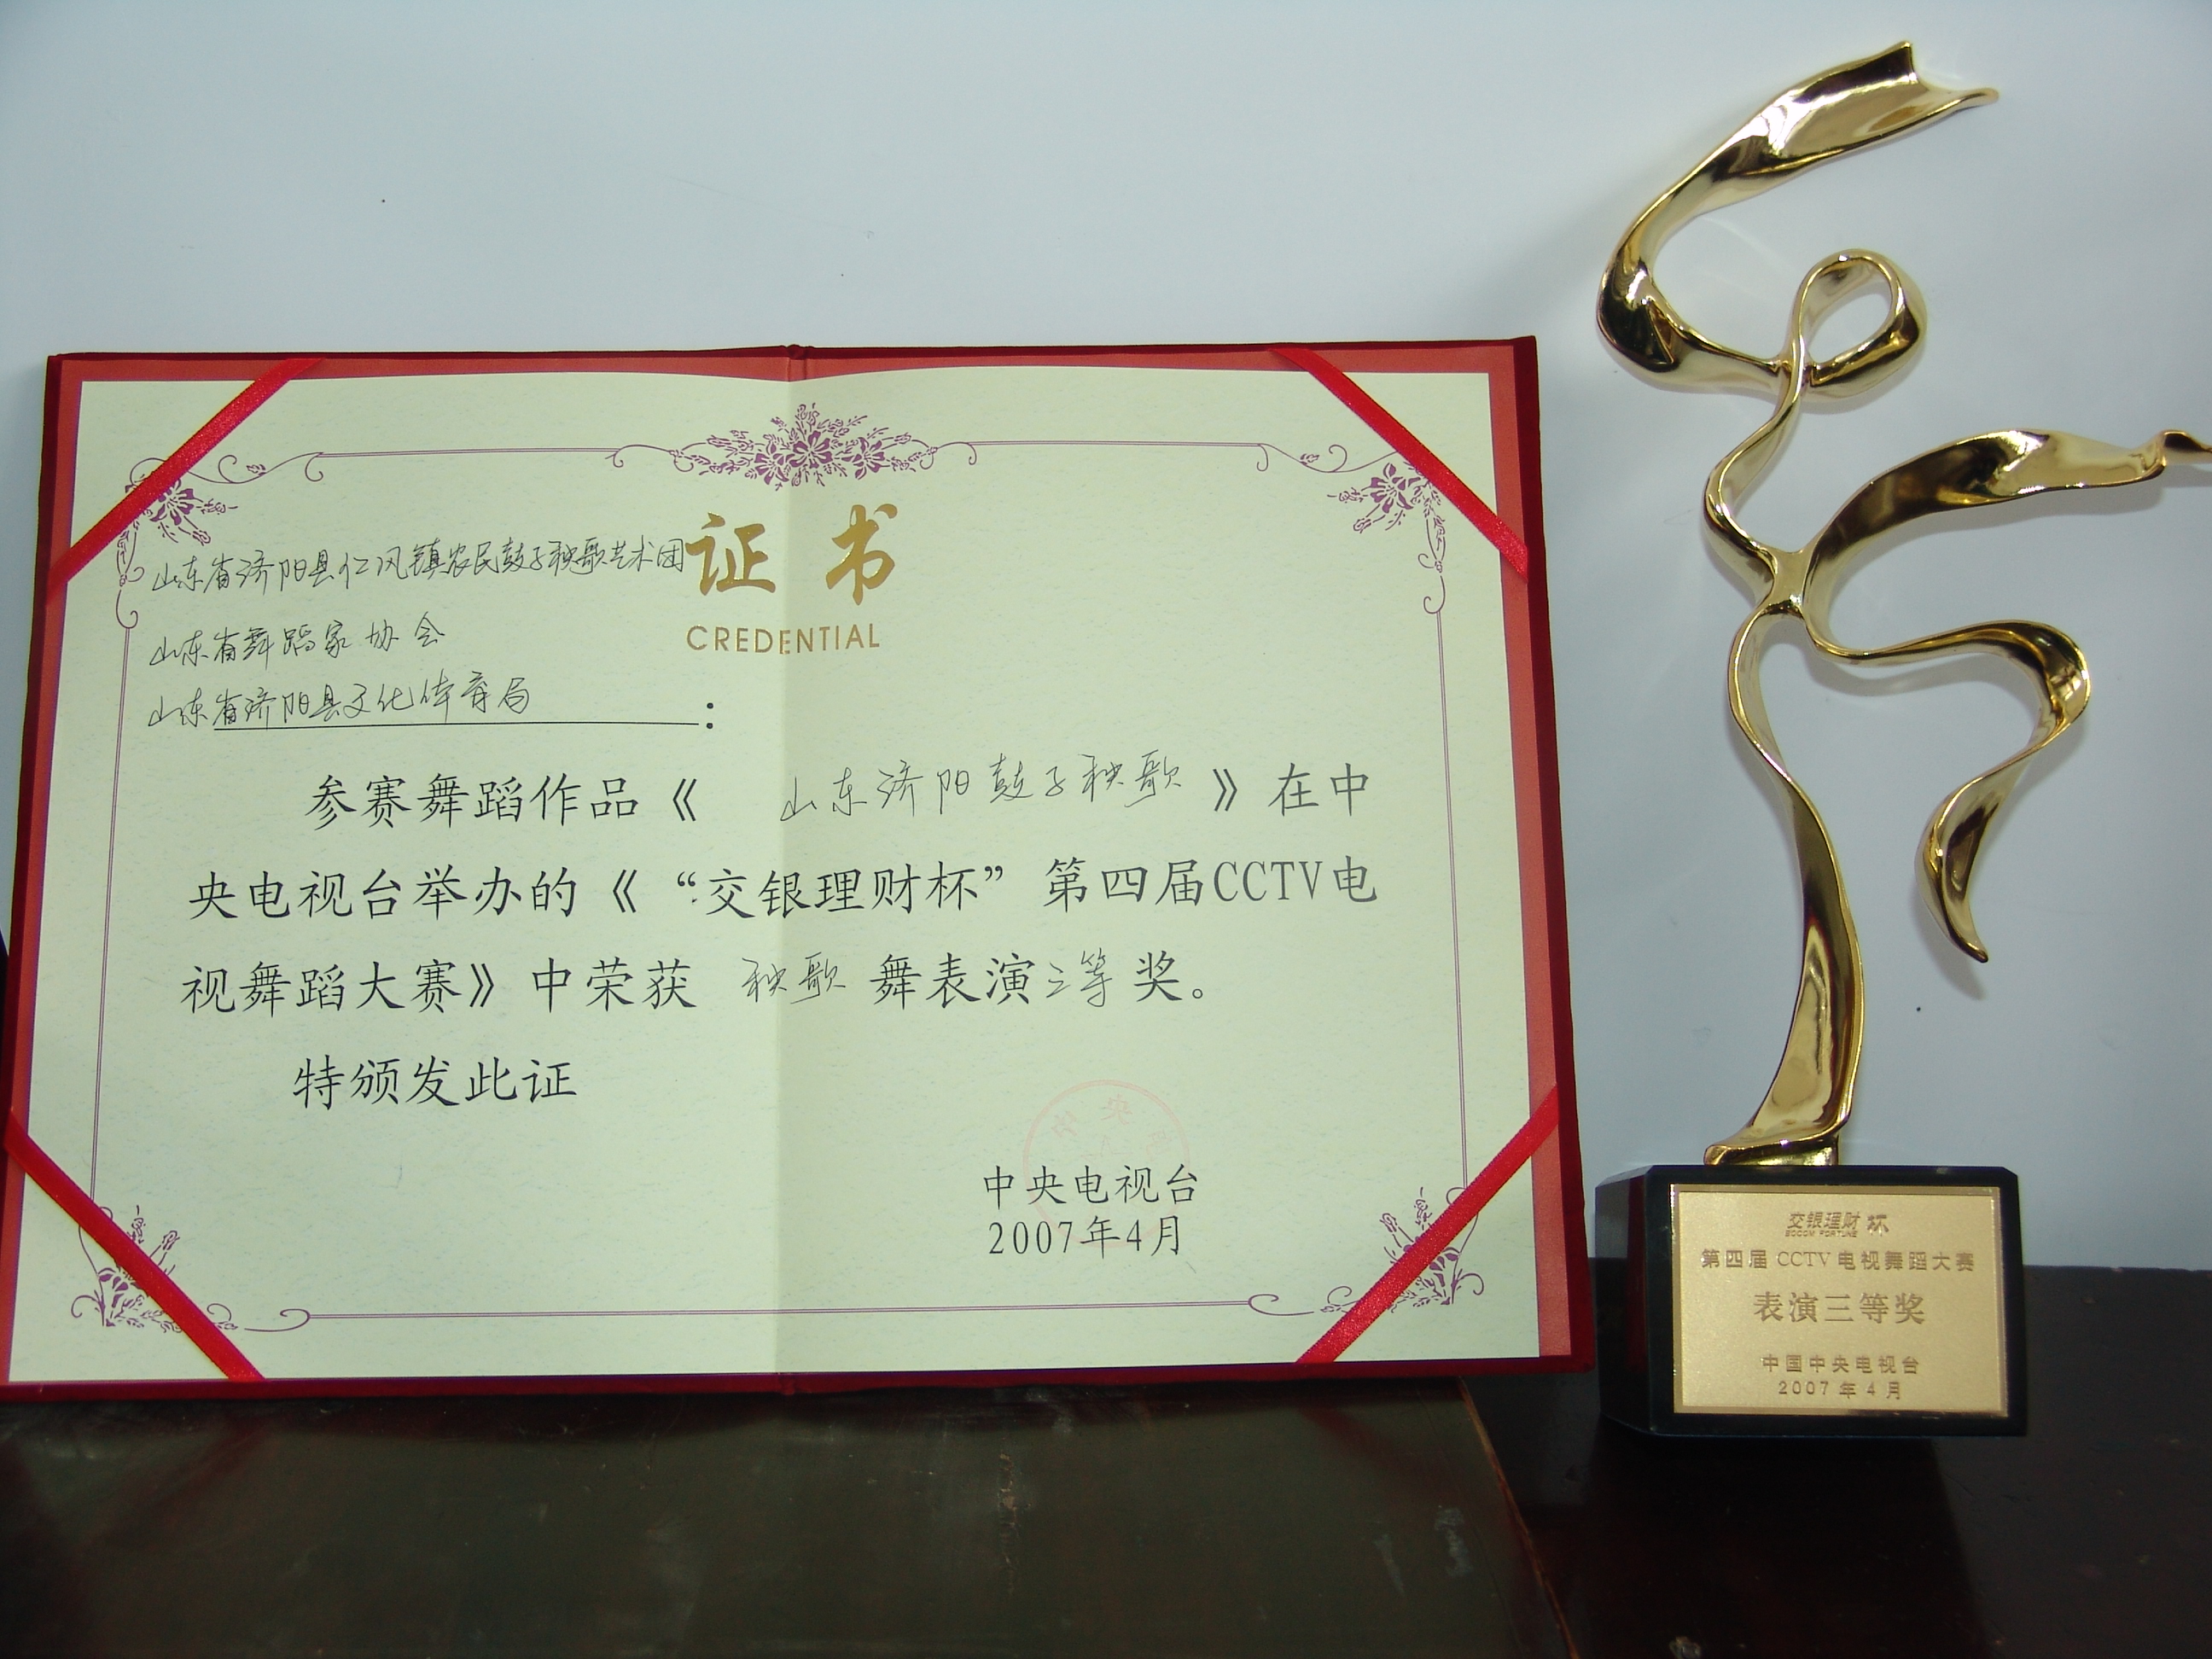 证书
CREDENTIAL
山东省济阳县仁风镇农民鼓子秧歌艺术团
山东省舞蹈家协会
山东省济阳县文化体育局：
参赛舞蹈作品《山东济阳鼓子秧歌》在中
央电视台举办的《“交银理财杯”第四届CCTV电
视舞蹈大赛》中荣获 秧歌 舞表演三等奖。
特颁发此证
中央电视台
2007年4月
交银理财杯
BOCOM FORTUNE
第四届 CCTV 电视舞蹈大赛
表演三等奖
中国中央电视台
2007年4月